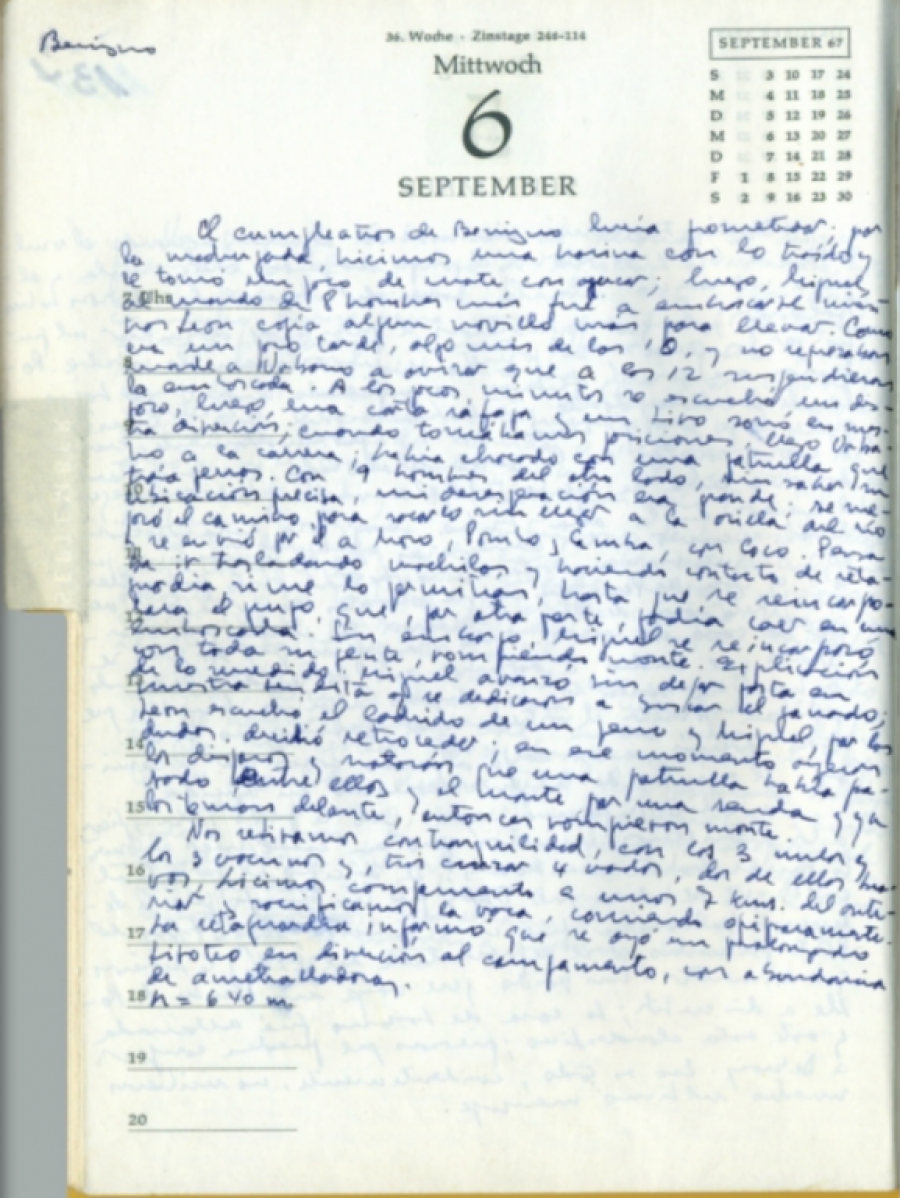 Benigno
36. Woche - Zinstage 246-114
Mittwoch
6
SEPTEMBER
SEPTEMBER 67
S 3 10 17 24
M 4 11 18 25
D 5 12 19 26
M 6 13 20 27
D 7 14 21 28
F 1 8 15 22 29
S 2 9 16 23 30
El cumpleaños de Benigno lucía prometedor; por
la madrugada hicimos una harina con lo traído y
se tomó un poco de mate con azucar; luego, Miguel
7 Uhr
al mando de 8 hombres más fue a emboscarse mien-
tras León cogía algun novillo más para llevar. Como
era un poco tarde, algo más de las 10, y no regresaban
8
mandé a Urbano a avisar que a las 12 suspendieran
la emboscada. A los pocos minutos se escuchó un dis-
paro, luego, una corta ráfaga y un tiro sonó en nues-
9
tra dirección; cuando tomábamos posiciones llegó Urba-
no a la carrera; había chocado con una patrulla que
traía perros. Con 9 hombres del otro lado, sin saber su
ubicación precisa, mi desesperación era grande; se me-
joró el camino para sacarlo sin llegar a la orilla del río
y se envió por él a Moro, Pombo y Camba, con Coco. Pensa-
ba ir trasladando mochilas y haciendo contacto de reta-
guardia si me lo permitían, hasta que se reincorpo-
rara el grupo, que, por otra parte, podía caer en una
12
emboscada. Sin embargo, Miguel se reincorporó
con toda su gente, rompiendo monte. Explicación
de lo sucedido: Miguel avanzó sin dejar posta en
13
nuestra sendita y se dedicaron a buscar el ganado;
León escuchó el ladrido de un perro y Miguel, por las
dudas, decidió retroceder; en ese momento oyeron
14
los disparos y notaron que una patrulla había pa-
sado entre ellos y el monte por una senda y ya
15
los tenían delante, entonces rompieron monte.
Nos retiramos con tranquilidad, con los 3 mulos y
los 3 vacunos y, tras cruzar 4 vados, dos de ellos bra-
16
vos, hicimos campamento a unos 7 kms. del ante-
rior y sacrificamos la vaca, comiendo opíparamente.
17
La retaguardia informó que se oyó un prolongado
tiroteo en dirección al campamento, con abundancia
de ametralladoras.
18
h = 640 m
19
20